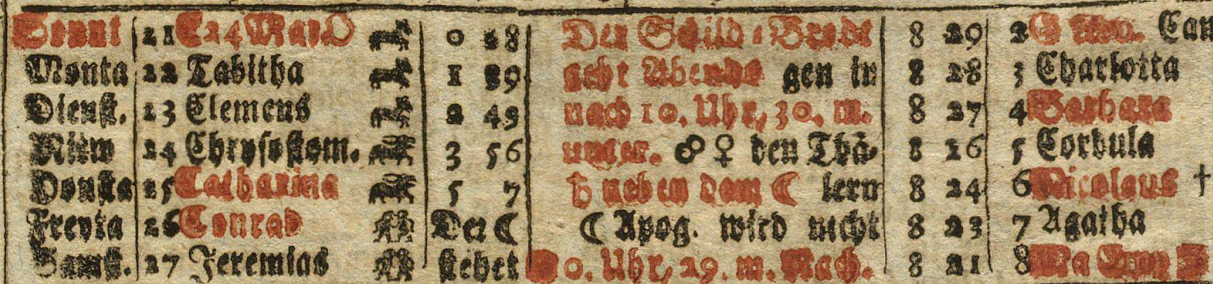 21 C 24 0 28 Der Schild 8 29 2
Monta 22 Tabitha 1 39 geht Abends gen in 8 28 3 Charlotta
Dienst. 23 Clemens 2 49 nach 10. Uhr, 30. m. 8 27 4 Barbara
Mitw 24 Chrysostom. 3 56 unter. ☍ ♀ den Thä- 8 26 5 Cordula
Donsta 25 Catharina 5 7 ♄ neben dem ☾ lern 8 24 6 Nicolaus †
Freyta 26 Conrad Der ☾ ☾ Apog. wird nicht 8 23 7 Agatha
Samst. 27 Jeremias stehet 0. Uhr, 29. m. Nach. 8 21 8